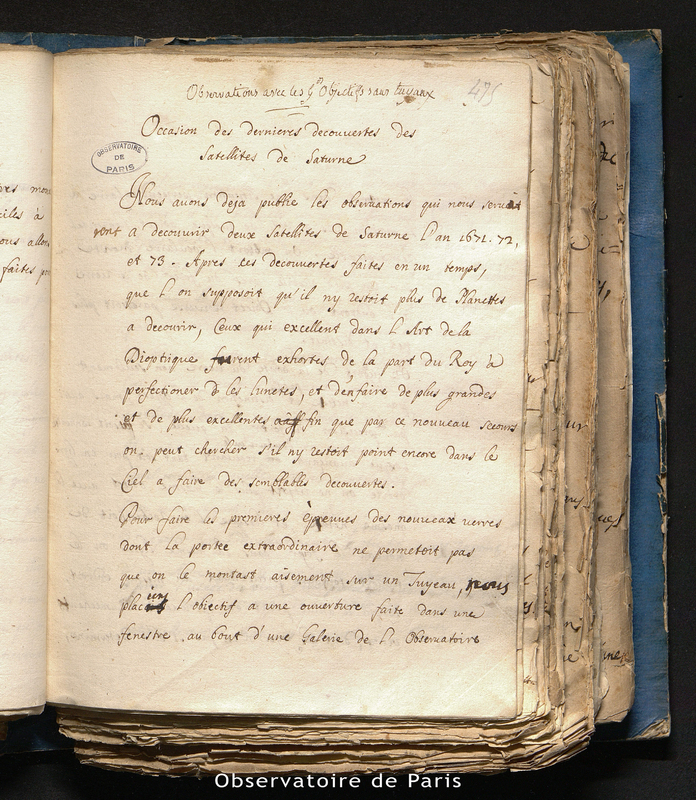 Observations avec les g.ds Objectifs sans tuyaux
475
Occasion des dernieres decouvertes des
Satellites de Saturne
OBSERVATOIRE
DE
PARIS
Nous avons deja publié les observations qui nous servi
rent a decouvrir deux Satellites de Saturne l'an 1671. 72,
et 73. Apres ces decouvertes faites en un temps,
que l'on supposoit qu'il ny restoit plus de Planettes
a decourir, Ceux qui excellent dans l'Art de la
Dioptrique furent exhortes de la part du Roy à
perfectioner les lunetes, et d'en faire de plus grandes
et de plus excellentes affin que par ce nouveau secours
on peut chercher s'il ny restoit point encore dans le
Ciel a faire des semblables decouvertes.
Pour faire les premieres épreuves des nouveaux verres
dont la portée extraordinaire ne permetoit pas
que on le montast aisement sur un Tuyeau, nous
l'obiectif a une ouverture faite dans une
fenestre au bout d'une Galerie de l'Observatoire
ciles à
ous allon
faites po
Observatoire de Paris